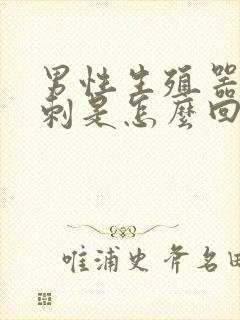 男性生殖器
刺是怎麼回
唯浦史斧名